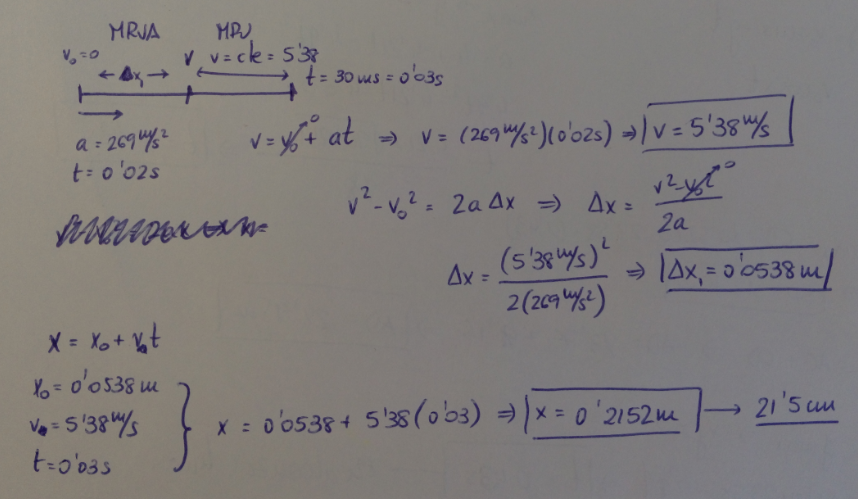 MRUA MRU
v₀=0 ← Δx₁ → v v=cte = 5'38
t = 30 ms = 0'03s
a = 269 m/s²
t = 0'02s
v = v₀⁰ + at ⇒ v = (269 m/s²)(0'02s) ⇒ v = 5'38 m/s
v² - v₀² = 2a Δx ⇒ Δx = (v² - v₀²⁰)/2a
Δx = (5'38 m/s)²/2(269 m/s²) ⇒ Δx₁ = 0'0538 m
x = x₀ + v₀t
x₀ = 0'0538 m
v₀ = 5'38 m/s
t = 0'03s
x = 0'0538 + 5'38 (0'03) ⇒ x = 0'2152 m → 21'5 cm